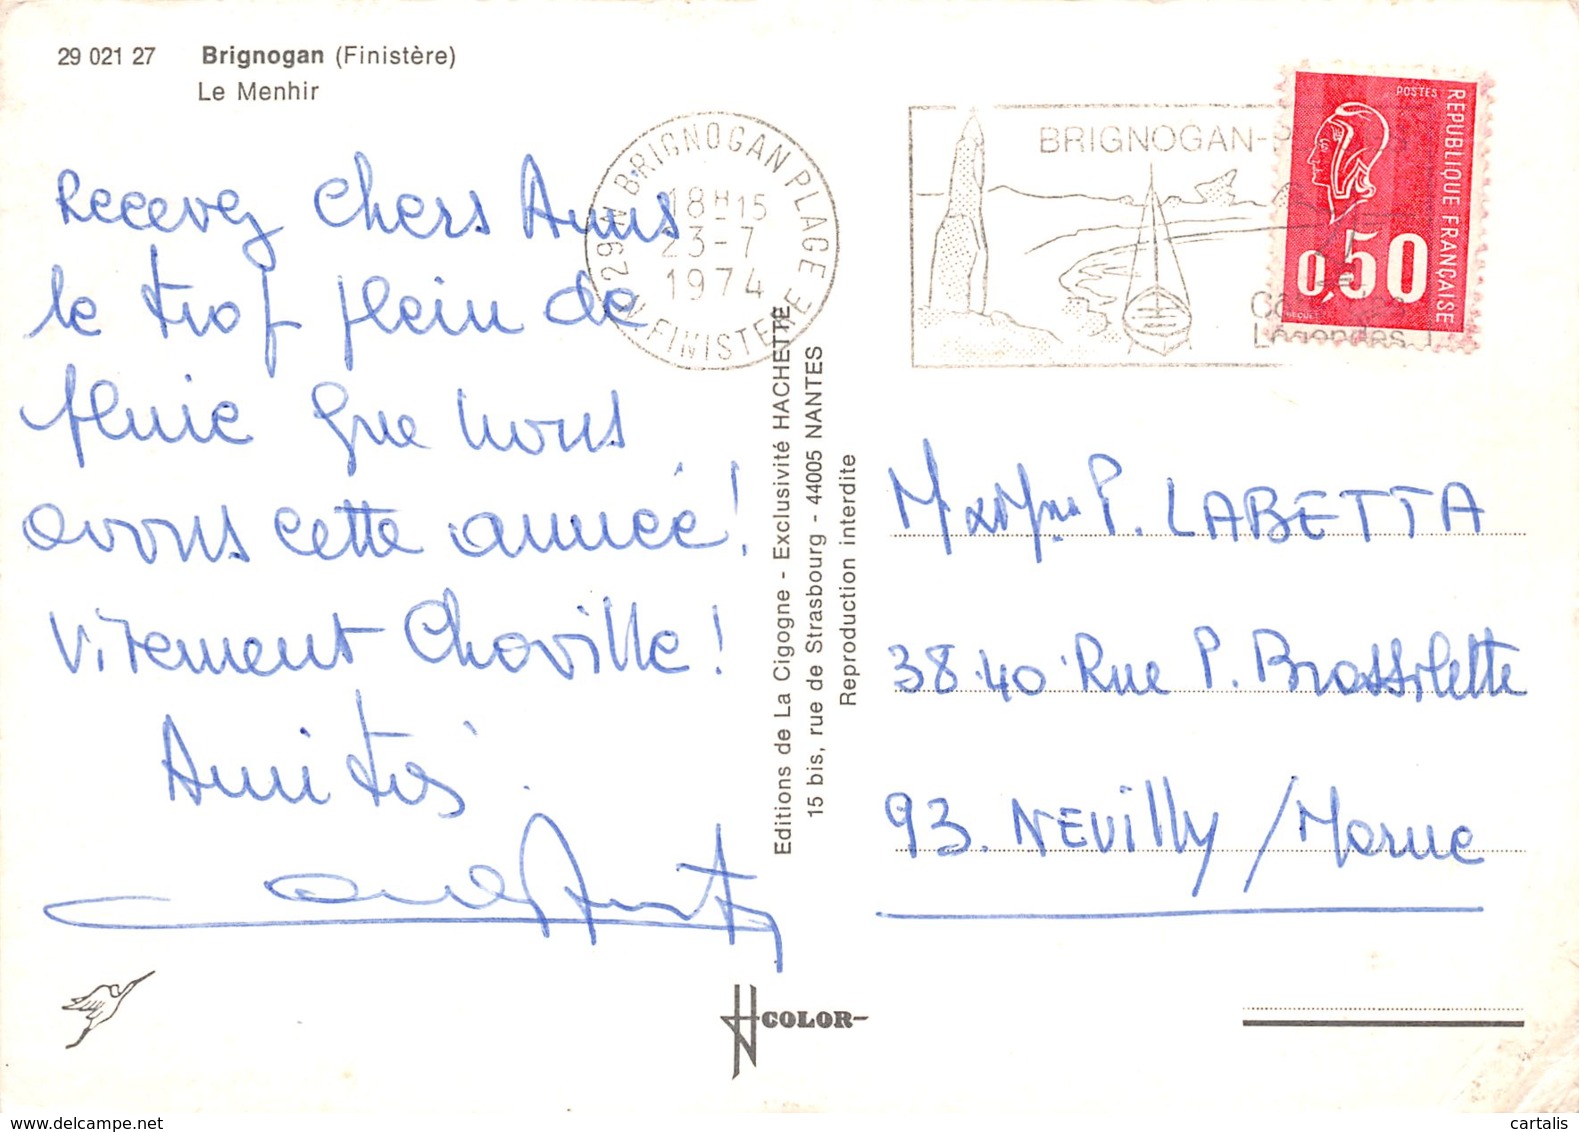 29 021 27 Brignogan (Finistère)
Le Menhir
Recevez chers Amis
le trop plein de
pluie que nous
avons cette année!
Vivement Chaville!
Amitiés.
29 N BRIGNOGAN PLAGE
18H15
23-7
1974
N. FINISTERE
BRIGNOGAN-P
Légendes
POSTES
REPUBLIQUE FRANÇAISE
0,50
M. et Mme P. LABETTA
38.40 Rue P. Brossolette
93. NEUilly / Marne
Editions de La Cigogne - Exclusivité HACHETTE
15 bis, rue de Strasbourg - 44005 NANTES
Reproduction interdite
COLOR
www.delcampe.net
cartalis